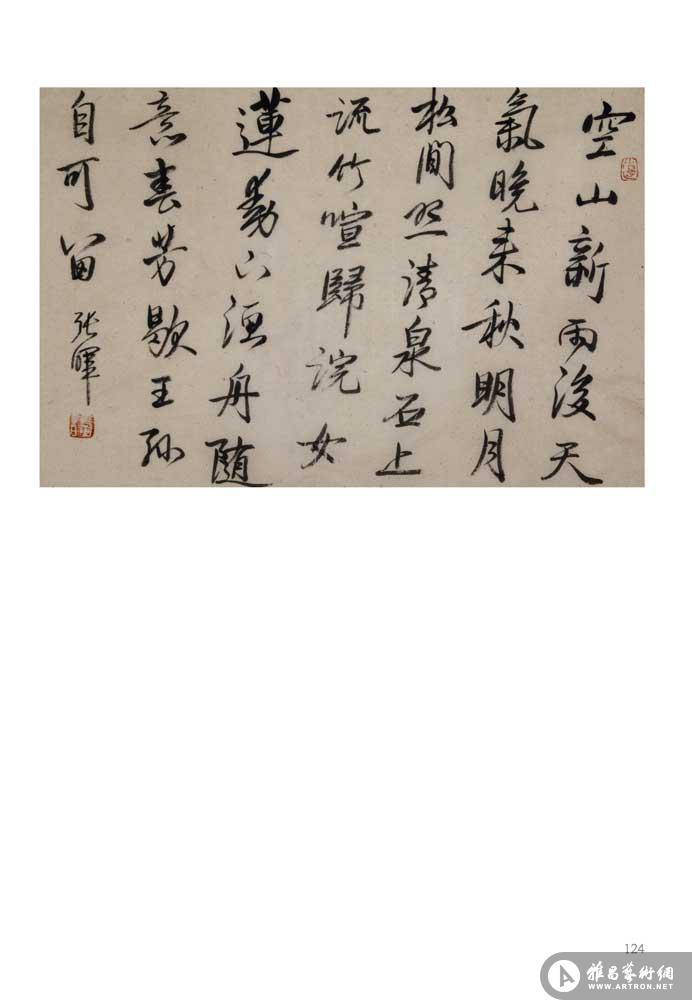 空山新雨後天
氣晚来秋明月
松間照清泉石上
流竹喧歸浣女
蓮動下漁舟随
意春芳歇王孫
自可留 张暉
124
雅昌藝術網
WWW.ARTRON.NET